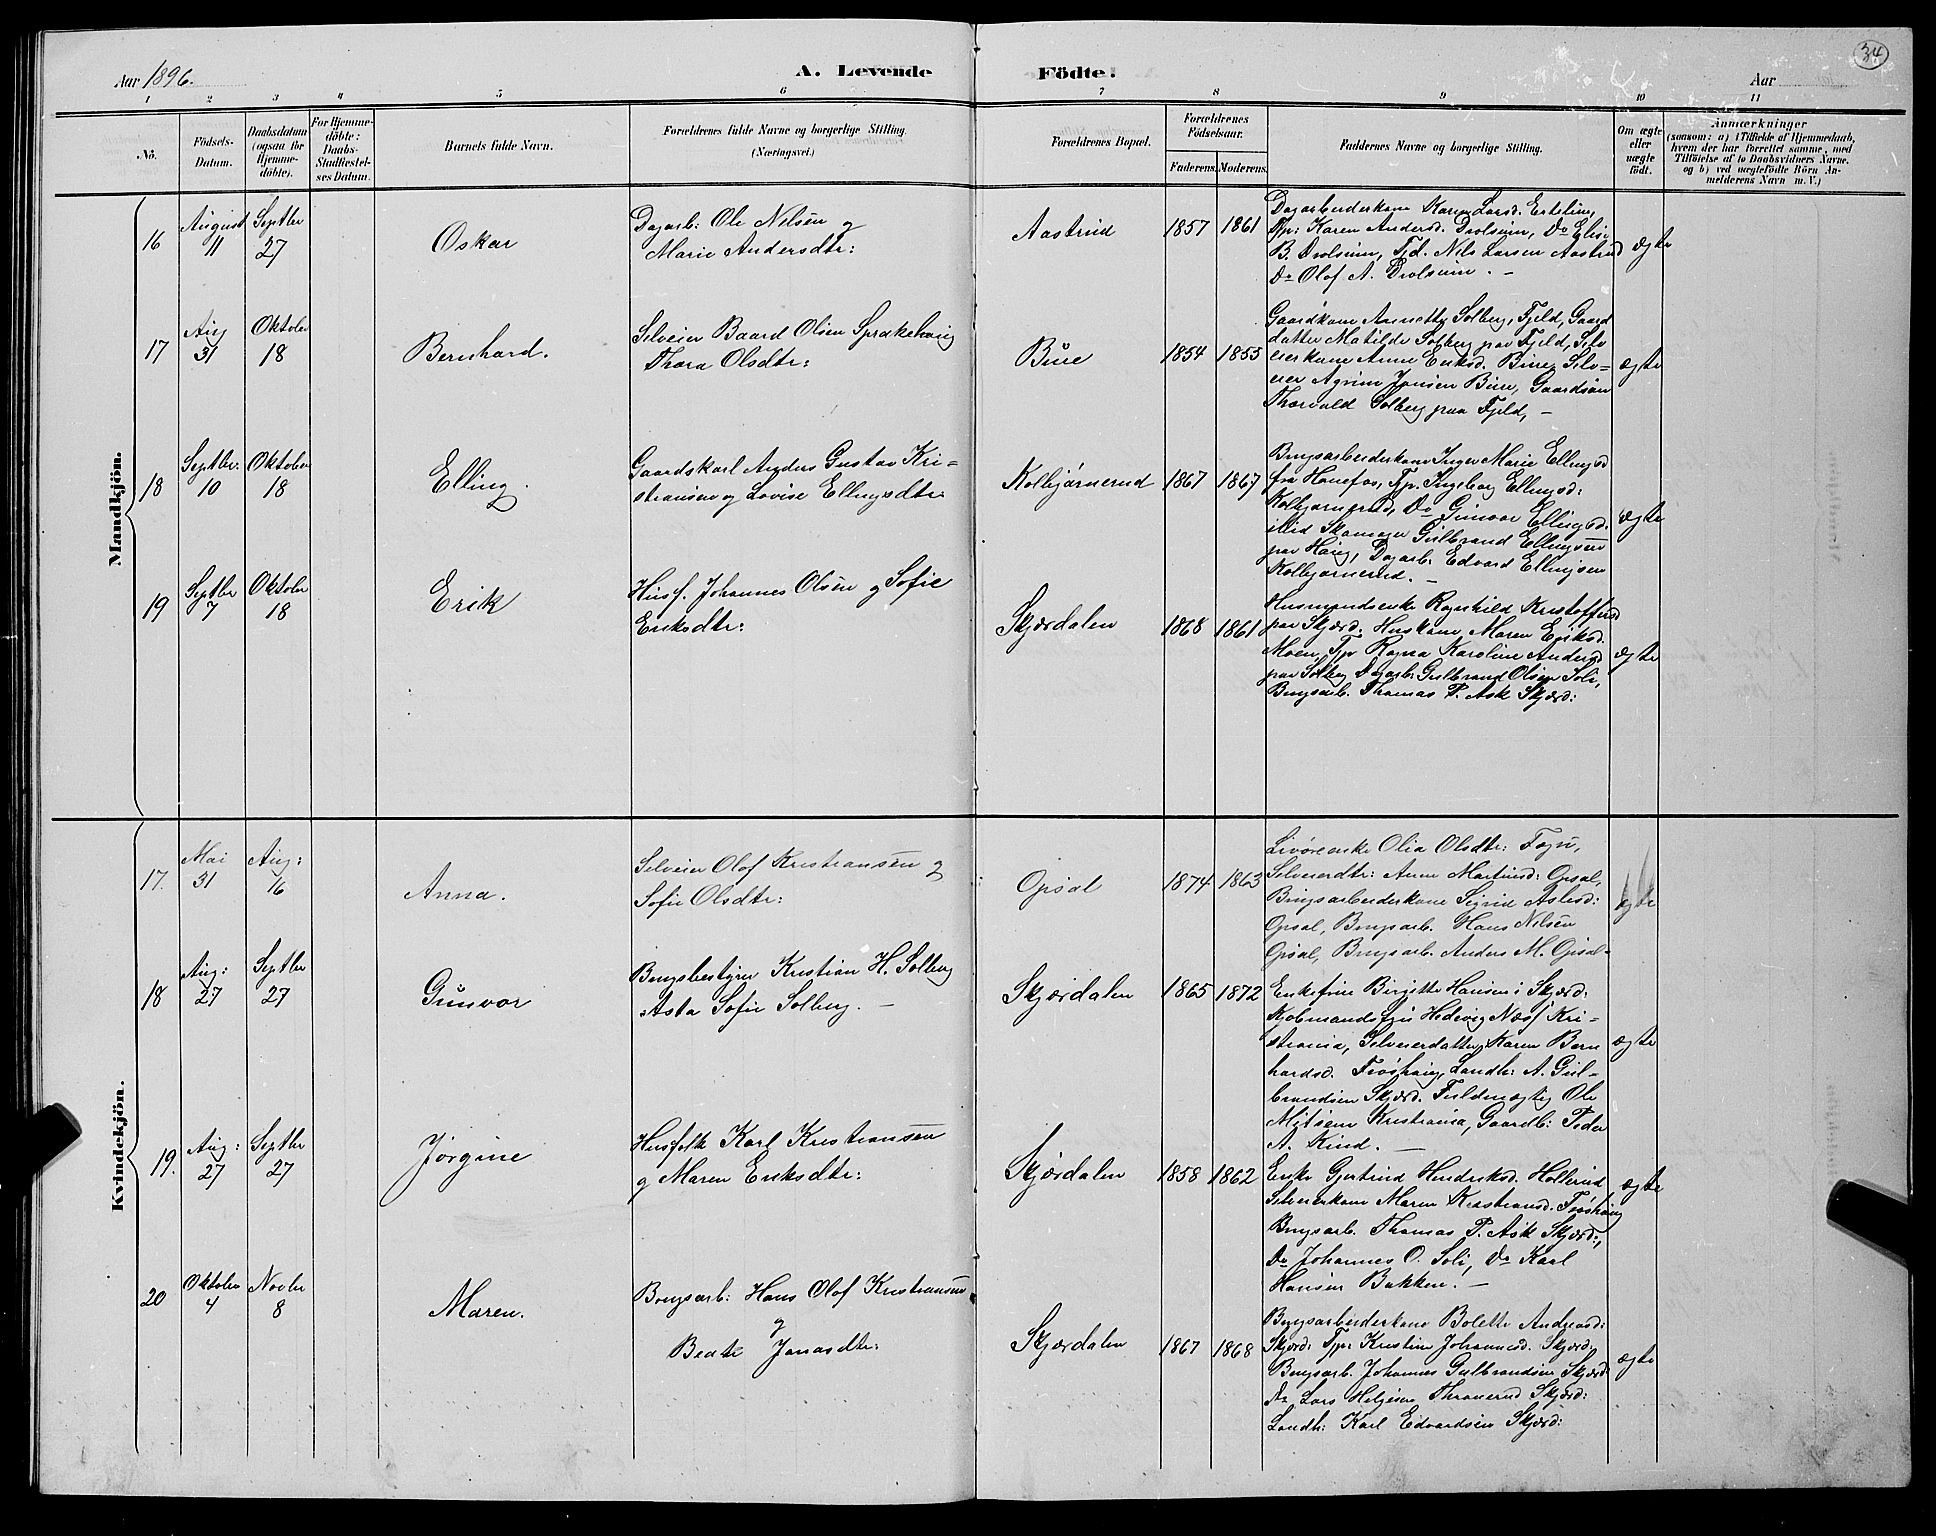 34
Aar 1896.
A. Levende Födte.
Aar
1 2 3 4 5 6 7 8 9 10 11
No.
Födsels-Datum.
Daabsdatum (ogsaa for Hjemme-döbte).
For Hjemme-döbte: Daabs-Stadfæstel-ses Datum.
Barnets fulde Navn.
Forældrenes fulde Navne og borgerlige Stilling. (Næringsvei.)
Forældrenes Bopæl.
Forældrenes Födselsaar.
Faderens. Moderens.
Faddernes Navne og borgerlige Stilling.
Om ægte eller uægte födt.
Anmærkninger
(saasom: a) i Tilfælde af Hjemmedaab, hvem der har forrettet samme, med Tilföielse af to Daabsvidners Navne. og b) ved uægtefödte Börn An-melderens Navn m. V.)
Mandkjön.
16
August 11
Septbr 27
Oskar
Dagarb: Ole Nilsen og
Marie Andersdtr:
Aastrud
1857 1861
Dagarbeiderkone Karen Larsd.
Tjp: Karen Andersd. Drolsum, Do Elise
B. Drolsum, Tjd. Nils Larsen Aastrud
Do Olof A. Drolsum. –
ægte
17
Aug 31
Oktober 18
Bernhard.
Selveier Baard Olsen Sprakehaug
Thora Olsdtr:
Bure
1854 1855
Gaardkone Annette Solberg, Fjeld, Gaard
datter Matilde Solberg paa Fjeld, Selv
eierkone Anne Eriksd. Bure, Selv=
eier Agrim Jonsen Bure, Gaardsøn
Thorvald Solberg paa Fjeld, –
ægte
18
Septbr: 10
Oktober 18
Elling.
Gaardskarl Anders Gustav Kri=
stiansen og Lovise Ellingsdtr:
Kolbjørnerud
1867 1867
Brugsarbeiderkone Inger Marie Ellingsd
fra Hønefos, Tjp. Ingeborg Ellingsd:
Kolbjørnerud, Do Gunvor Ellingsd.
Skomager Gulbrand Ellingsen
paa Haug, Dagarb. Edvard Ellingsen
Kolbjørnerud. –
ægte
19
Septbr 7
Oktober 18
Erik
Husf. Johannes Olsen og Sofie
Eriksdtr:
Skjærdalen
1868 1861
Husmandsenke Ragnhild Kristoffersd
paa Skjærd. Huskone Maren Eriksd.
Moen, Tjp Ragna Karoline Andersd
paa Solberg Dagarb: Gulbrand Olsen Soli,
Brugsarb. Thomas P. Ask Skjærd:
ægte
Kvindekjön.
17.
Mai 31
Aug: 16
Anna.
Selveier Olof Kristiansen og
Sofie Olsdtr:
Opsal
1874 1863
Livøreenke Olia Olsdtr:
Selveierdtr: Anne Martinsd: Opsal,
Brugsarbeiderkone Sigrid Aslesd:
Opsal, Brugsarb. Hans Nilsen
Opsal, Brugsarb. Anders M. Opsal–
ægte
18
Aug: 27
Septbr 27
Gunvor
Brugsbestyrer Kristian H. Solberg
Asta Sofie Solberg. –
Skjærdalen
1865 1872
Enkefrue Birgitte Hansen i Skjærd:
Kjøbmandsfru Hedevig Næss Kri=
stiania, Selveierdatter Karen Bern
hardsd. Frøshaug, Landh: A. Gul=
brandsen Skjærd. Fuldmægtig Ole
Kristiania, Gaardb: Peder
A. Rud. –
ægte
19.
Aug: 27
Septbr 27
Jørgine
Husfolk Karl Kristiansen
og Maren Eriksdtr:
Skjærdalen
1858 1862
Enke Gjertrud Hendriksd. Hollerud
Selveierkone Maren Kristiansd. Frøshaug
Brugsarb. Thomas P. Ask Skjærd:,
Do Johannes O. Soli, Do Karl
Hansen Bakken. –
ægte
20
Oktober 4
Novbr 8
Maren.
Brugsarb: Hans Olof Kristiansen
og
Beate Jonasdtr:
Skjærdalen
1867 1868
Brugsarbeiderkone Bolette Andreasd:
Skjærd: Tjp: Kristine Johannesd. Skjærd:
Brugsarb. Johannes Gulbrandsen Skjærd:
Do Lars Helgesen Thranerud Skjærd:
Landh: Karl Edvardsen Skjærd:
ægte